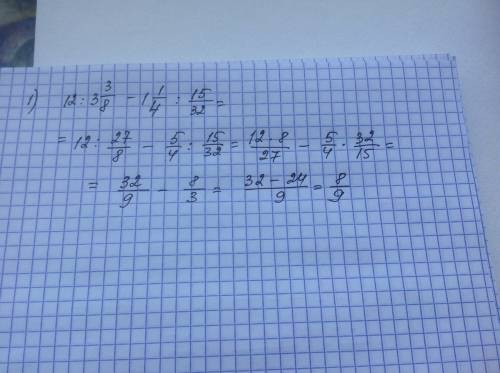 1) 12 : 3 3/8 - 1 1/4 : 15/32 =
= 12 : 27/8 - 5/4 : 15/32 = 12·8/27 - 5/4 · 32/15 =
= 32/9 - 8/3 = 32-24/9 = 8/9